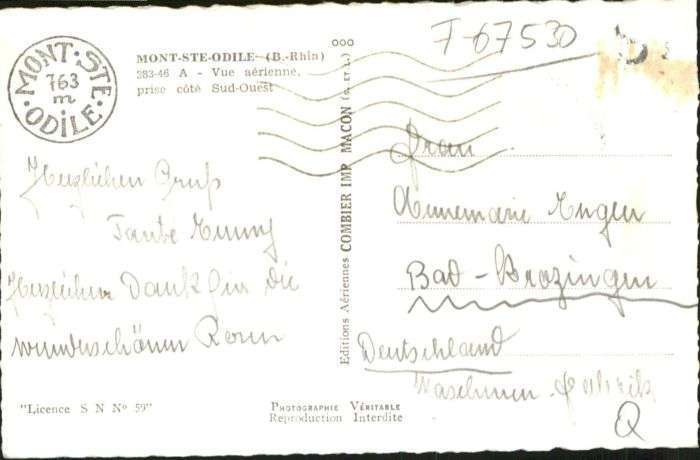 MONT·STE·ODILE·
763
m
MONT-STE-ODILE- (B.-Rhin)
283-46 A - Vue aérienne,
prise côté Sud-Ouest
Herzlichen Gruß
Tante Emmy
Herzlichen Dank für die
wunderschönen
"Licence S N N° 59"
Editions Aériennes COMBIER IMP MACON (S. ET L.)
PHOTOGRAPHIE VÉRITABLE
Reproduction Interdite
F-67530
Frau
Annemarie
Bad-Krozingen
Deutschland
Q